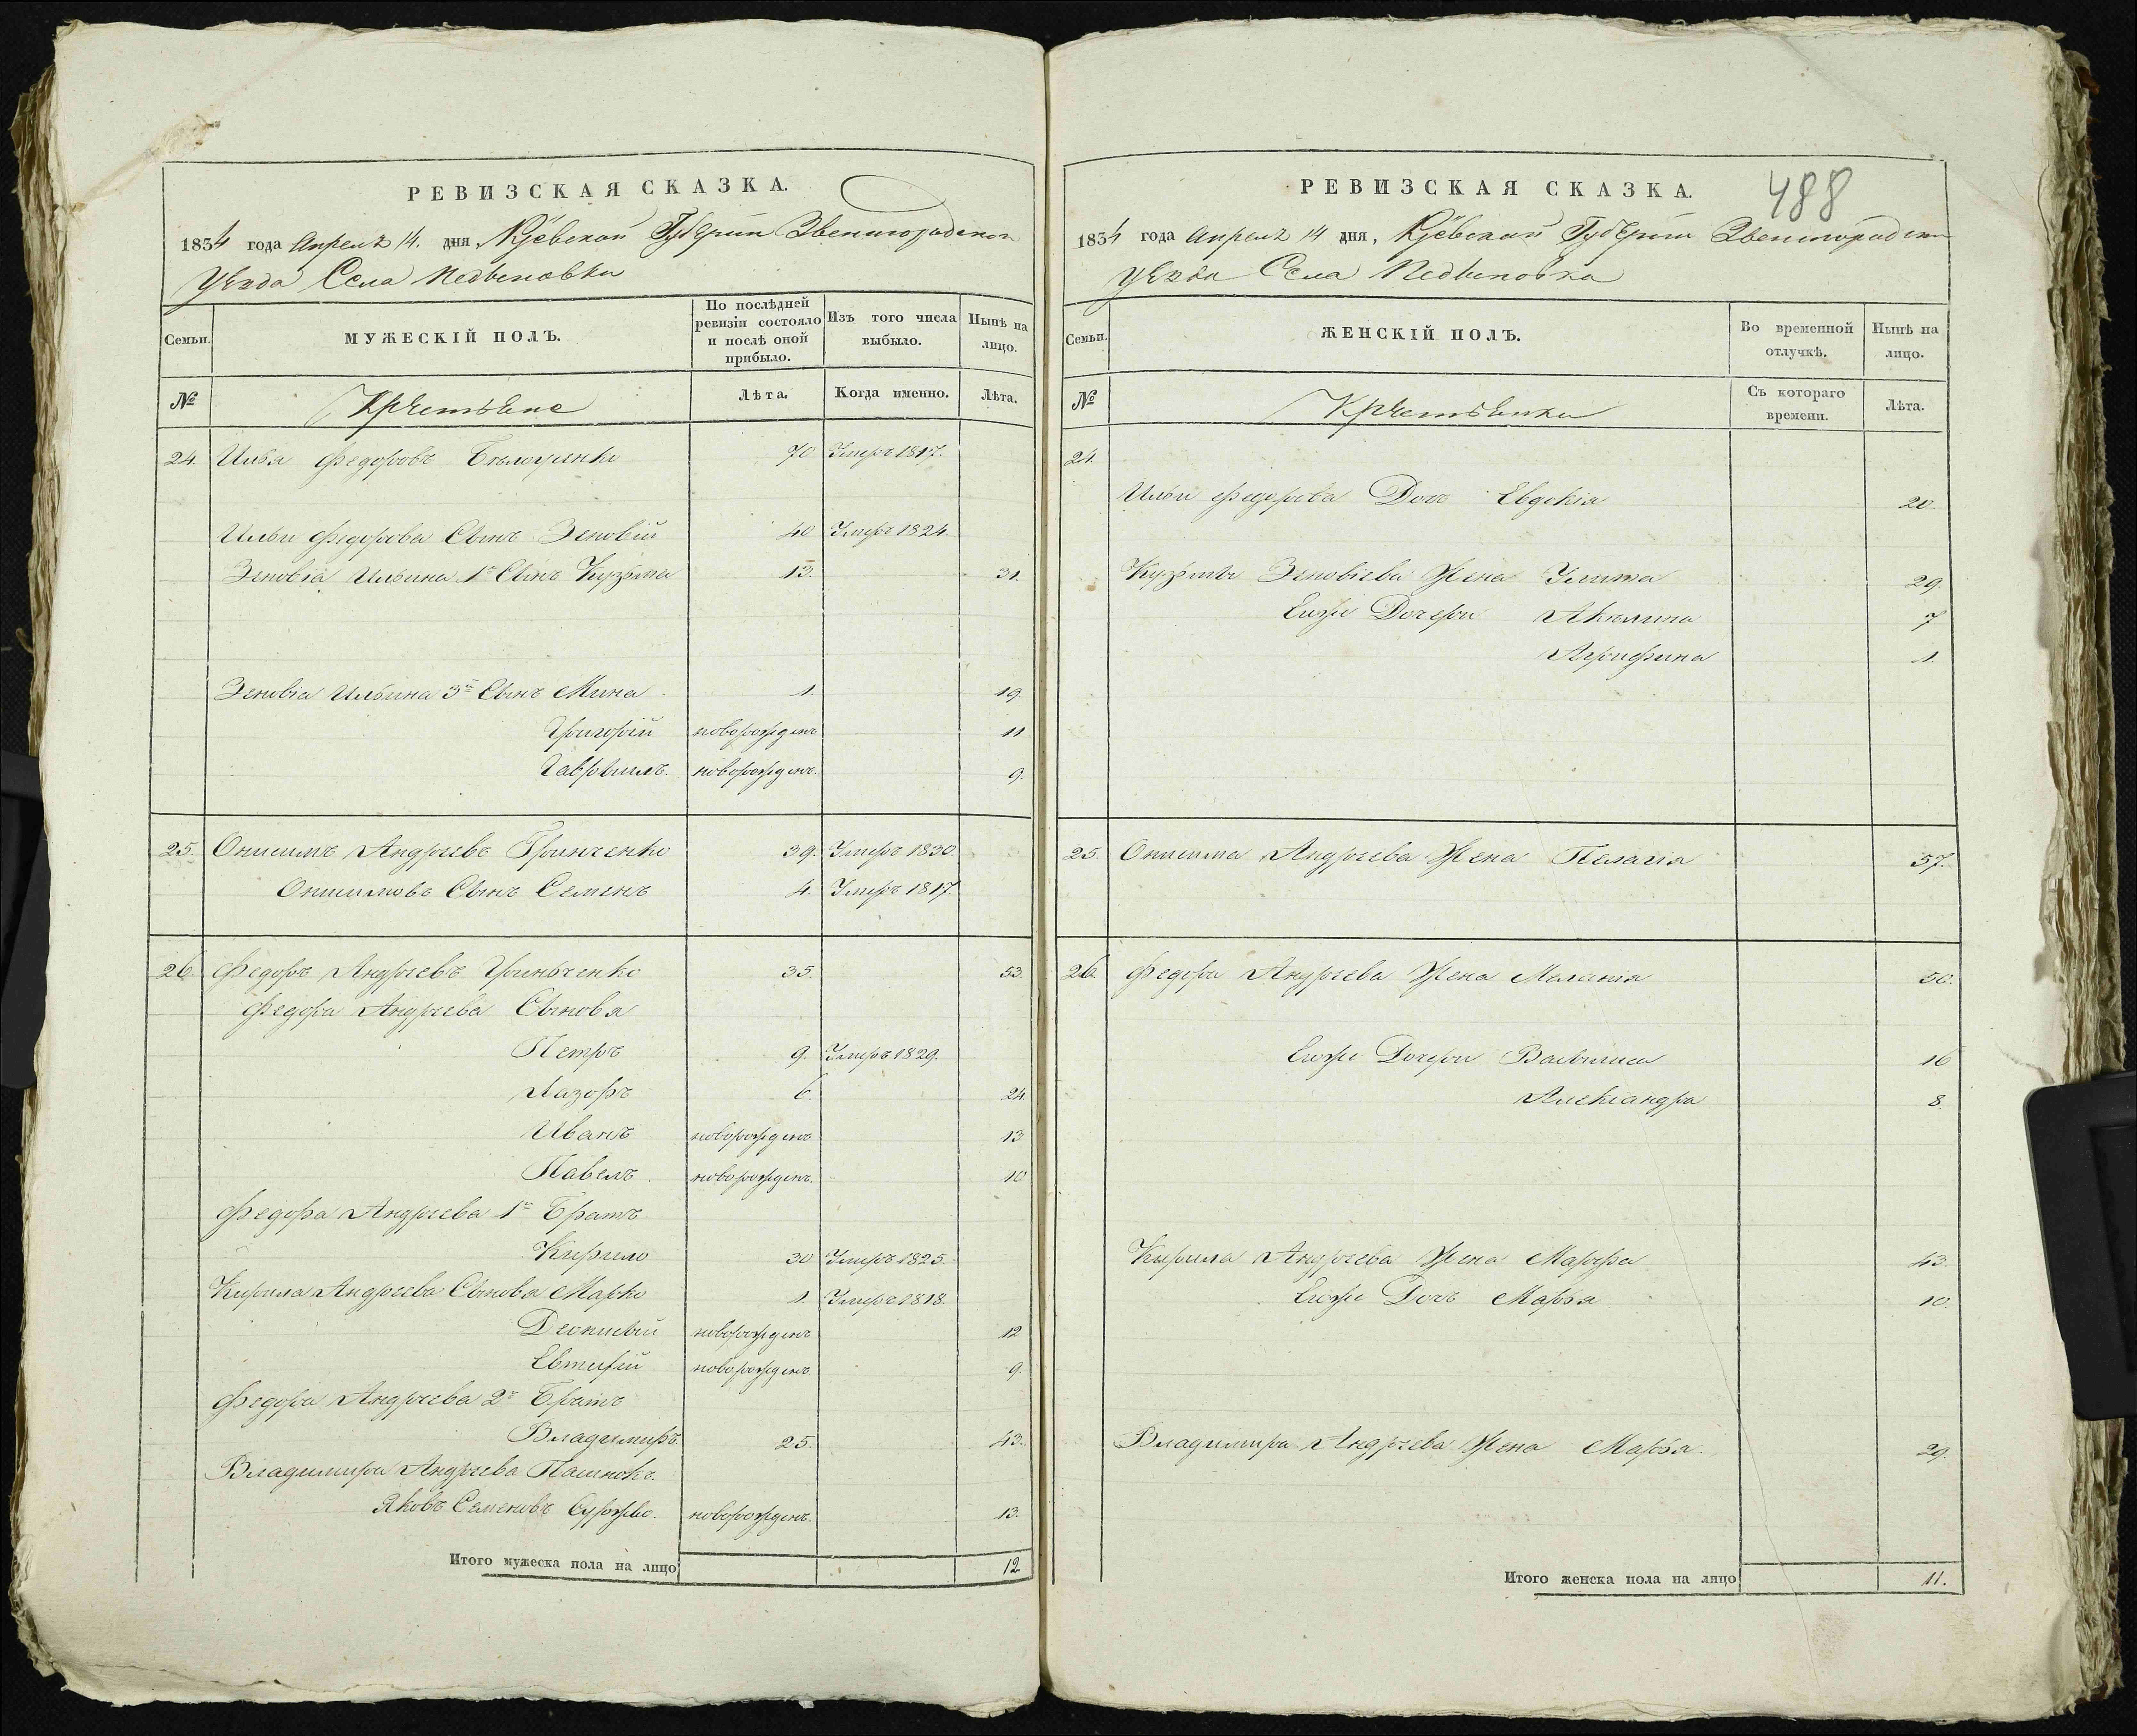 РЕВИЗСКАЯ СКАЗКА.
1834 года Апреля 14. дня, Кіевской Губерніи Звенигородскаго
уезда Села
Семьи.
МУЖЕСКІЙ ПОЛЪ.
По послѣдней ревизіи состояло и послѣ оной прибыло.
Изъ того числа выбыло.
Нынѣ на лицо.
№
Крестьяне
Лѣта.
Когда именно.
Лѣта.
24. Илья Федоровъ 70 Умеръ 1817.
Ильи Федорова Сынъ Зеновій 40 Умеръ 1824.
Зеновіа Ильина 1й Сынъ Кузьма 13. 31.
Зеновіа Ильина 3й Сынъ Мина 1. 19.
Григорій новорожденъ 11
Гавріилъ. новорожденъ. 9.
25. Онисимъ Андреевъ Гринченко 39. Умеръ 1830.
Онисимовъ Сынъ Семенъ 4. Умеръ 1817.
26. Федоръ Андреевъ Гриньченко 35 53
Федора Андреева Сыновя
Петръ 9. Умеръ 1829.
Лазоръ 6. 24
Иванъ новорожденъ. 13
Павелъ. новорожденъ. 10
Федора Андреева 1й Братъ
Кирило 30 Умеръ 1825.
Кирила Андреева Сыновя Марко 1. Умеръ 1818.
новорожденъ 12
Евтифій новорожденъ. 9.
Федора Андреева 2й Братъ
Владимиръ. 25. 43.
Владимира Андреева
Яковъ Семеновъ новорожденъ. 13.
Итого мужеска пола на лицо 12
РЕВИЗСКАЯ СКАЗКА.
488
1834 года Апреля 14 дня, Кіевской Губерніи Звенигородскаго
уезда Села
Семьи.
ЖЕНСКІЙ ПОЛЪ.
Во временной отлучкѣ.
Нынѣ на лицо.
№
Крестьянки
Съ котораго времени.
Лѣта.
24.
Ильи Федорова Дочь Евдокія 20.
Кузьмы Зеновіева Жена Улита 29.
Егоже Дочери Акилина 7
Агрифина 1.
25. Онисима Андреева Жена Пелагія 57.
26. Федора Андреева Жена Меланія 50.
Егоже Дочери Василиса 16
Александра 8
Кирила Андреева Жена Марфа 43.
Егоже Дочь Марья 10.
Владимира Андреева Жена Марья. 29.
Итого женска пола на лицо 11.